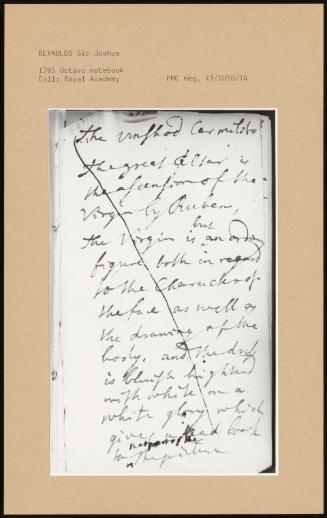 REYNOLDS Sir Joshua
1785 Octavo notebook
Coll: Royal Academy
PMC neg. 73/1050/14
The unshod Carmilits
The great Altar is
the ascension of the
Virgin by Ruben,
but
the Virgin is an ordinary
figure both in regard
to the Character of
the face as well as
the drawing of the
body. and the dress
is blewish heightend
with white on a
white glory which
gives a dead look
to the picture.